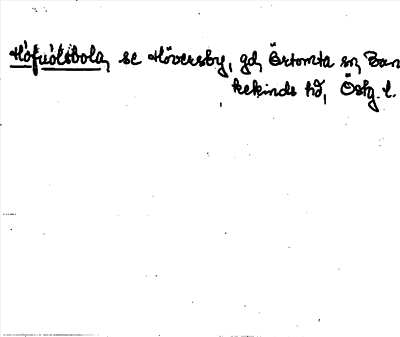 Höfuólsbola, se Höversby, gd, Örtomta sn, Ban
kekinds hd, Östg. l.